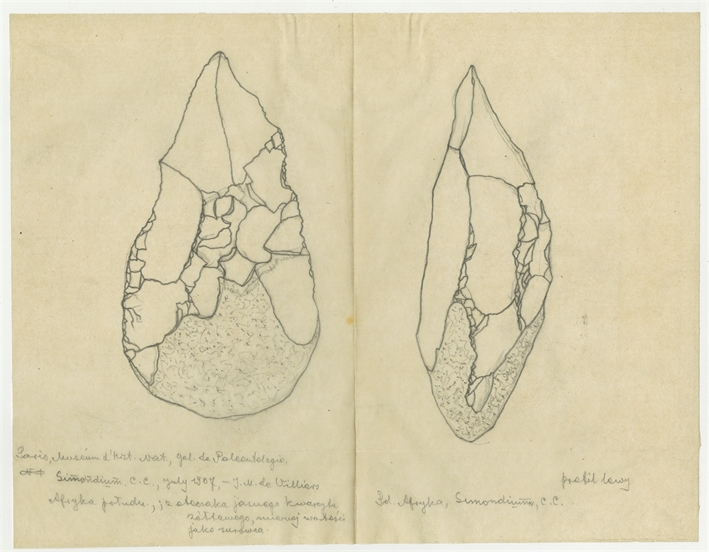 Paris, Muséum d'Hist. Nat., gal. de Paléontologie.
Simondium, C.C., July 1907, – J.M. de Villiers
Afryka połudn., z otoczaka jasnego kwarcytu
żółtawego, mniej wartości
jako surowca.
profil lewy
Pd. Afryka, Simondium, C.C.